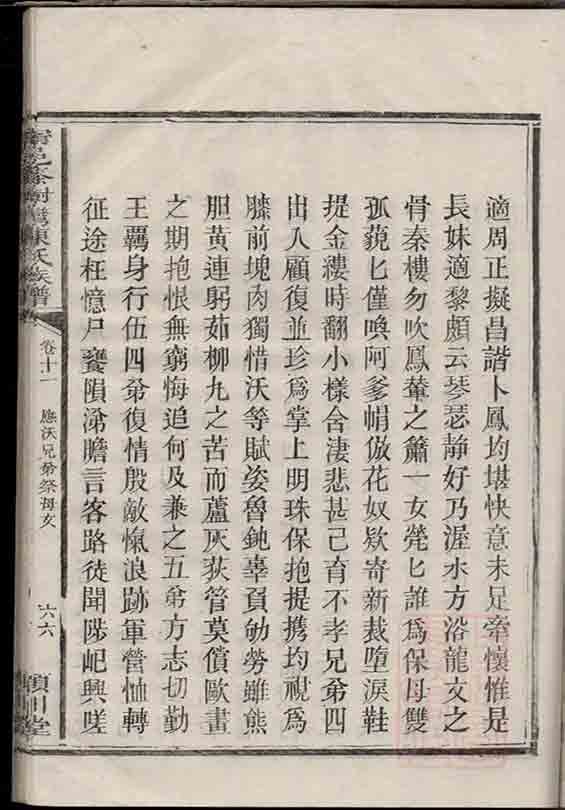 適周正擬昌諧卜鳳均堪快意未足牽懷惟是
長妹適黎頗云琴瑟靜好乃渥水方浴龍文之
骨秦樓勿吹鳳輦之簫一女煢匕誰爲保母雙
孤藐匕僅喚阿爹帩倣花奴欵寄新裁墮淚鞋
提金縷時翻小樣含淒悲甚己育不孝兄弟四
出入顧復並珍爲掌上明珠保抱提携均視爲
膝前塊肉獨惜沃等賦姿魯鈍辜負劬勞雖熊
胆黃連躬茹柳九之苦而蘆灰荻管莫償歐畫
之期抱恨無窮悔追何及兼之五弟方志切勤
王羈身行伍四弟復情殷敵愾浪跡軍營恤轉
征途枉憶尸饔隕涕瞻言客路徒聞陟屺興嗟
陳氏族譜
卷十一
應沃兄弟祭母文
六六
潁川堂